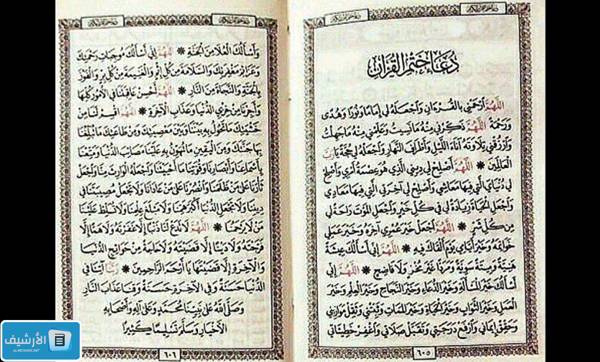 دعاء ختم القرآن
اللهم ارحمني بالقرءان واجعله لي إماما ونورا وهدى
ورحمة * اللهم ذكرني منه مانسيت وعلمني منه ماجهلت
وارزقني تلاوته آناء الليل وأطراف النهار واجعله لي حجة يارب
العالمين * اللهم أصلح لي ديني الذي هو عصمة أمري وأصلح
لي دنياي التي فيها معاشي وأصلح لي آخرتي التي فيها معادي
واجعل الحياة زيادة لي في كل خير واجعل الموت راحة لي
من كل شر * اللهم اجعل خير عمري آخره وخير عملي
خواتمه وخير أيامي يوم ألقاك فيه * اللهم إني أسألك عيشة
هنية وميتة سوية ومردا غير مخز ولا فاضح * اللهم
إني أسألك خير المسألة وخير الدعاء وخير النجاح وخير العلم وخير
العمل وخير الثواب وخير الحياة وخير الممات وثبتني وثقل موازيني
وحقق إيماني وارفع درجتي وتقبل صلاتي واغفر خطيئاتي
٦٠٥
وأسألك العلا من الجنة * اللهم إني أسألك موجبات رحمتك
وعزائم مغفرتك والسلامة من كل إثم والغنيمة من كل بر والفوز
بالجنة والنجاة من النار * اللهم أحسن عاقبتنا في الأمور كلها
وأجرنا من خزي الدنيا وعذاب الآخرة * اللهم اقسم لنا من
خشيتك ماتحول به بيننا وبين معصيتك ومن طاعتك ماتبلغنا
بها جنتك ومن اليقين ماتهون به علينا مصائب الدنيا ومتعنا
بأسماعنا وأبصارنا وقوتنا ماأحييتنا واجعله الوارث منا واجعل
ثأرنا على من ظلمنا وانصرنا على من عادانا ولا تجعل مصيبتنا في
ديننا ولا تجعل الدنيا أكبر همنا ولا مبلغ علمنا ولا تسلط علينا
من لا يرحمنا * اللهم لا تدع لنا ذنبا إلا غفرته ولا هما إلا
فرجته ولا دينا إلا قضيته ولا حاجة من حوائج الدنيا
والآخرة إلا قضيتها يا أرحم الراحمين * ربنا آتنا في
الدنيا حسنة وفي الآخرة حسنة وقنا عذاب النار
وصلى الله على نبينا محمد وعلى آله وأصحابه
الأخيار وسلم تسليما كثيرا
٦٠٦
الأرشيف